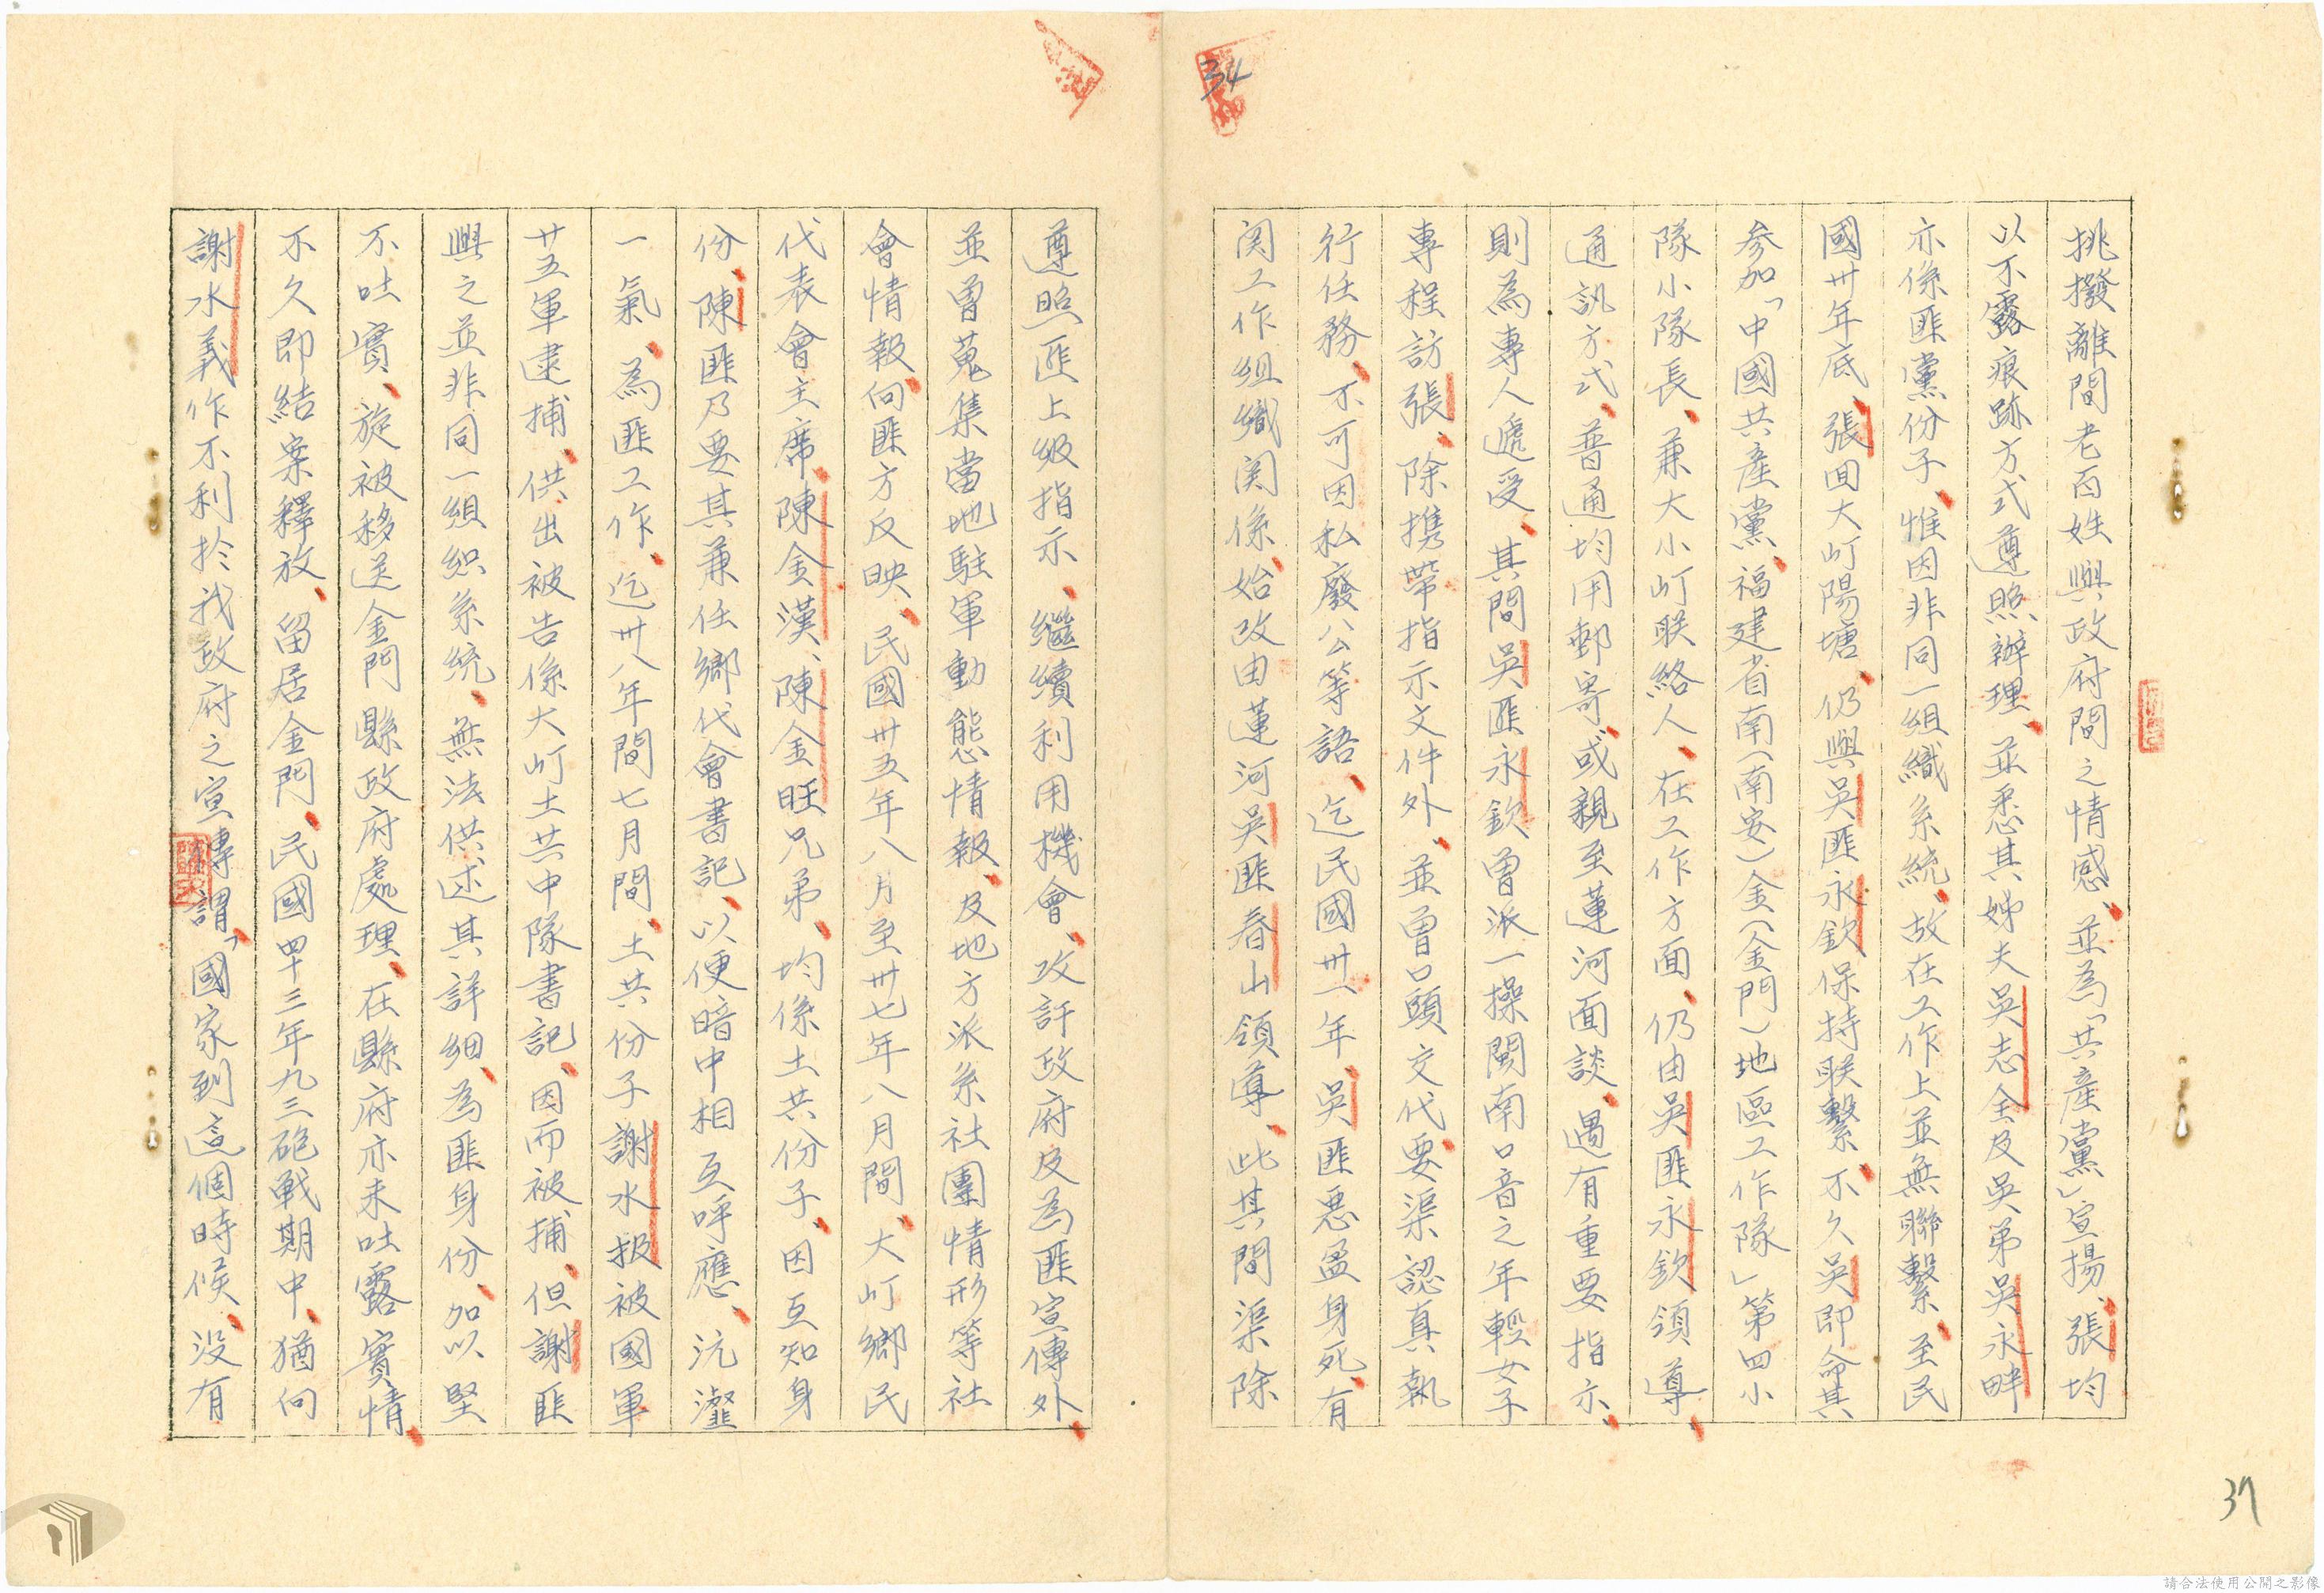 34
挑撥離間老百姓與政府間之情感、並為「共產黨」宣揚、張均
以不露痕跡方式遵照辦理、並悉其姊夫吳志全及吳弟吳永畔
亦係匪黨份子、惟因非同一組織系統、故在工作上並無聯繫、至民
國卅年底、張回大嶝陽塘、仍與吳匪永欽保持联繫、不久吳即命其
參加「中國共產黨、福建省南(南安)金(金門)地區工作隊」第四小
隊小隊長、兼大小嶝联絡人、在工作方面、仍由吳匪永欽領導、
通訊方式、普通均用郵寄、或親至蓮河面談、遇有重要指示、
則為專人遞受、其間吳匪永欽曾派一操閩南口音之年輕女子
專程訪張、除携帶指示文件外、並曾口頭交代、要渠認真執
行任務、不可因私廢公等語、迄民國卅一年、吳匪惡盈身死、有
関工作組織関係、始改由蓮河吳匪春山領導、此其間渠除
遵照匪上級指示、繼續利用機會、攻訐政府及為匪宣傳外、
並曾蒐集當地駐軍動態情報、及地方派系社團情形等社
會情報、向匪方反映、民國卅五年八月至卅七年八月間、大嶝鄉民
代表會主席、陳金漢、陳金旺兄弟、均係土共份子、因互知身
份、陳匪乃要其兼任鄉代會書記、以便暗中相互呼應、沆瀣
一氣、為匪工作、迄卅八年間七月間、土共份子謝水扱被國軍
廿五軍逮捕、供出被告係大嶝土共中隊書記、因而被捕、但謝匪
與之並非同一組织系統、無法供述其詳細、為匪身份、加以堅
不吐實、旋被移送金門縣政府處理、在縣府亦未吐露實情、
不久即結案釋放、留居金門、民國四十三年九三砲戰期中、猶向
謝水義作不利於我政府之宣傳謂、「國家到這個時候、沒有
37
請合法使用公開之影像